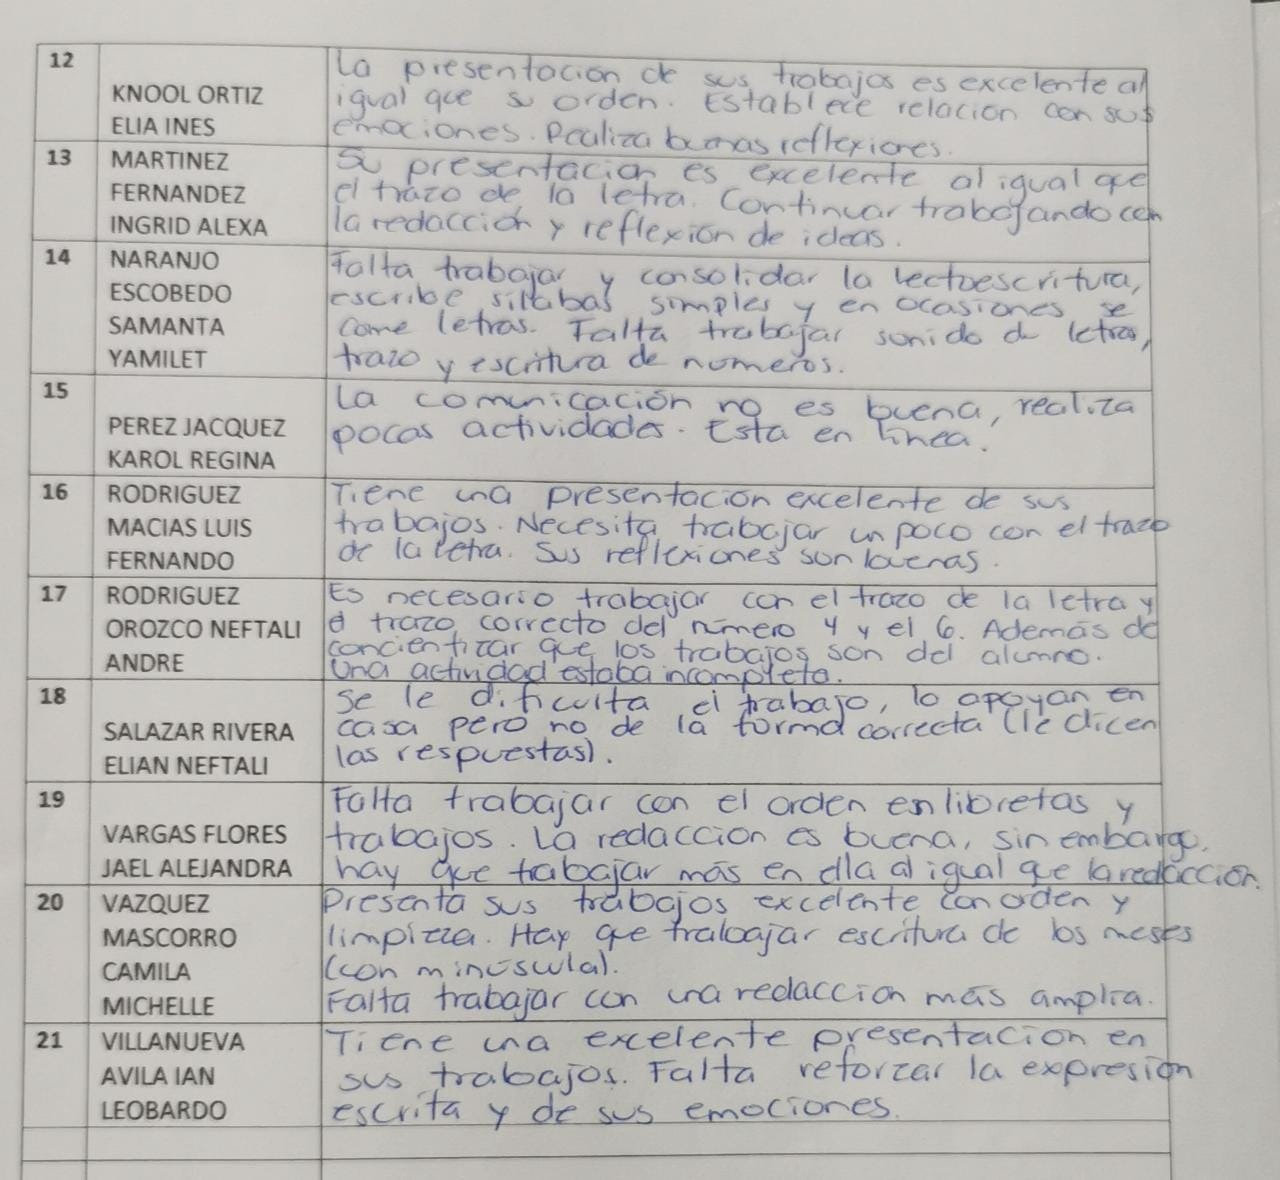 12
KNOOL ORTIZ
ELIA INES
La presentación de sus trabajos es excelente al
igual que su orden. Establece relación con sus
emociones. Realiza buenas reflexiones.
13
MARTINEZ
FERNANDEZ
INGRID ALEXA
Su presentación es excelente al igual que
el trazo de la letra. Continuar trabajando con
la redacción y reflexión de ideas.
14
NARANJO
ESCOBEDO
SAMANTA
YAMILET
Falta trabajar y consolidar la lectoescritura,
escribe silabas simples y en ocasiones se
come letras. Falta trabajar sonido de letras,
trazo y escritura de numeros.
15
PEREZ JACQUEZ
KAROL REGINA
La comunicación no es buena, realiza
pocas actividades. Esta en linea.
16
RODRIGUEZ
MACIAS LUIS
FERNANDO
Tiene una presentación excelente de sus
trabajos. Necesita trabajar un poco con el trazo
de la letra. Sus reflexiones son buenas.
17
RODRIGUEZ
OROZCO NEFTALI
ANDRE
Es necesario trabajar con el trazo de la letra y
el trazo correcto del número 4 y el 6. Además de
concientizar que los trabajos son del alumno.
Una actividad estaba incompleta.
18
SALAZAR RIVERA
ELIAN NEFTALI
Se le dificulta el trabajo, lo apoyan en
casa pero no de la forma correcta (le dicen
las respuestas).
19
VARGAS FLORES
JAEL ALEJANDRA
Falta trabajar con el orden en libretas y
trabajos. La redacción es buena, sin embargo,
hay que trabajar más en ella al igual que la redacción.
20
VAZQUEZ
MASCORRO
CAMILA
MICHELLE
Presenta sus trabajos excelente con orden y
limpieza. Hay que trabajar escritura de los meses
(con minúscula).
Falta trabajar con una redacción más amplia.
21
VILLANUEVA
AVILA IAN
LEOBARDO
Tiene una excelente presentación en
sus trabajos. Falta reforzar la expresión
escrita y de sus emociones.